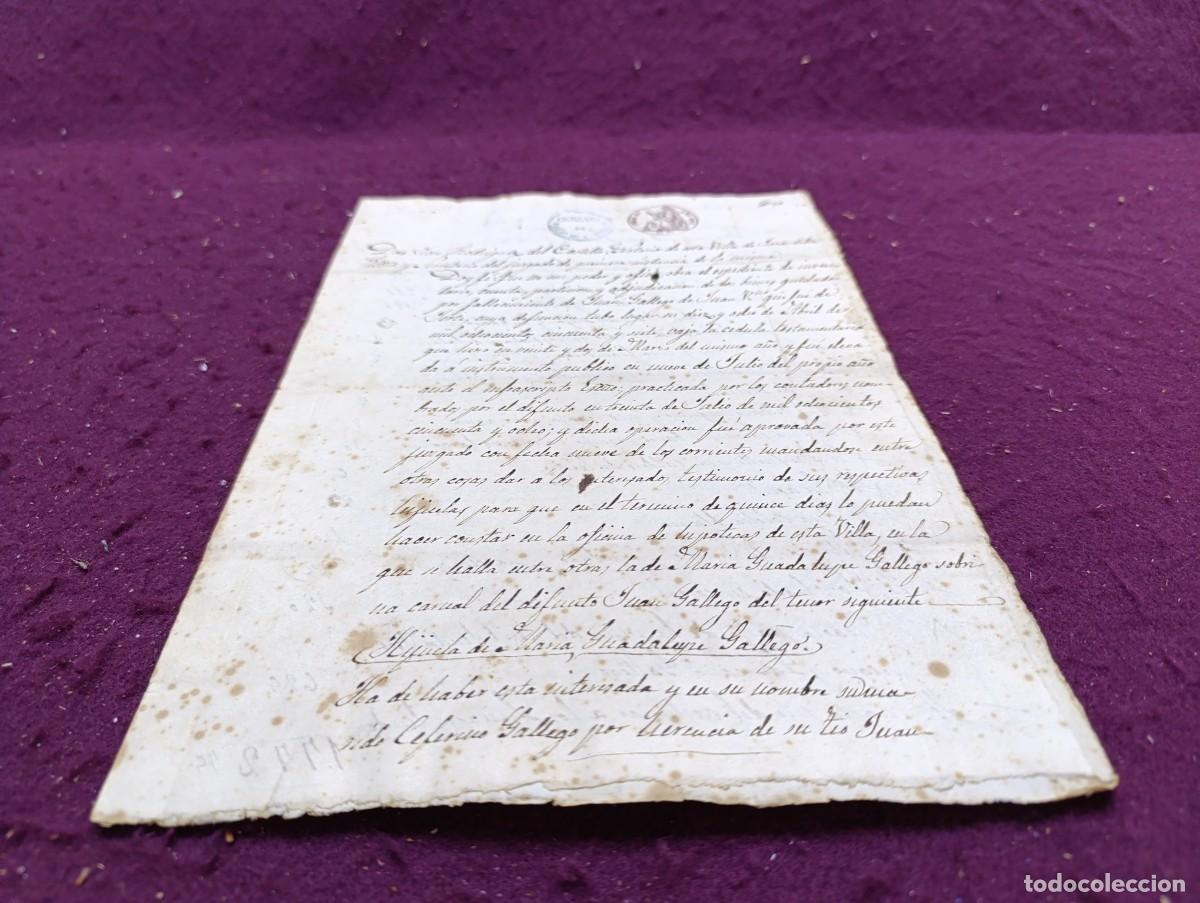 Don del Castillo Escribano de esta Villa de
del juzgado de primera instancia de la misma
Doy fé: Que en mi poder y oficio obra el espediente de
cuenta, particion y adjudicacion de los bienes quedados
por fallecimiento de Juan Gallego de Juan Vno. que fué de
cuya defuncion tubo lugar en diez y ocho de Abril de
mil ochocientos cincuenta y siete, vajo la cedula testamentaria
que hizo en veinte y dos de Marzo del mismo año y fué eleva
da a instrumento publico en nueve de Julio del propio año
ante el infrascripto Essno; practicada por los contadores nom-
brados por el difunto en treinta de Julio de mil ochocientos
cincuenta y ocho; y dicha operacion fué aprovada por este
juzgado con fecha nueve de los corrientes mandandose entre
otras cosas dar a los interesados testimonio de sus respectivas
hijuelas para que en el termino de quince dias lo puedan
hacer constar en la oficina de hipotecas de esta Villa, en la
que se halla entre otras la de Maria Guadalupe Gallego sobri
na carnal del difunto Juan Gallego del tenor siguiente
Hijuela de Maria Guadalupe Gallego.
Ha de haber esta interesada y en su nombre su ma-
rido Ceferino Gallego por herencia de su tio Juan
todocoleccion